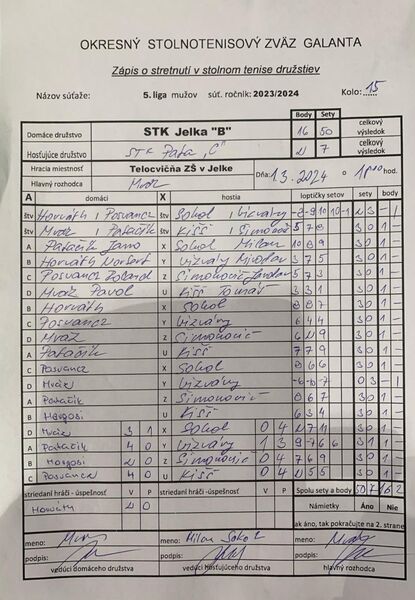 OKRESNÝ STOLNOTENISOVÝ ZVÄZ GALANTA
Zápis o stretnutí v stolnom tenise družstiev
Názov súťaže: 5. liga mužov súť. ročník: 2023/2024 Kolo: 15
Body Sety celkový výsledok
Domáce družstvo STK Jelka "B" 16 50
Hosťujúce družstvo STK Pata "C" 2 7 celkový výsledok
Hracia miestnosť Telocvičňa ZŠ v Jelke Dňa: 1.3.2024 o
Hlavný rozhodca Mráz
A domáci X hostia loptičky setov sety body
štv Horváth , Posvancz štv Sokol , Vizváry
štv Mráz , Patačik štv Kišš , Simonovič 5 7 8 3 0 1 -
A Patačik Jano X Sokol Milan 10 8 9 3 0 1 -
B Horváth Norbert Y Vizváry Miroslav 3 7 5 3 0 1 -
C Posvancz Roland Z Simonovič 5 7 3 3 0 1 -
D Mráz Pavol U Kišš Tomáš 3 3 1 3 0 1 -
B Horváth X Sokol 3 0 1 -
C Posvancz Y Vizváry 6 4 4 3 0 1 -
D Mráz Z Simonovič 3 0 1 -
A Patačik U Kišš 7 7 9 3 0 1 -
C Posvancz X Sokol 3 0 1 -
D Mráz Y Vizváry 0 3 - 1
A Patačik Z Simonovič 8 6 7 3 0 1 -
B Hergosi U Kišš 6 3 4 3 0 1 -
D Mráz 3 1 X Sokol 0 4 3 0 1 -
A Patačik 4 0 Y Vizváry 1 3 9 7 6 6 3 0 1 -
B Hergosi 2 0 Z Simonovič 0 4 7 6 9 3 0 1 -
C Posvancz 4 0 U Kišš 0 4 3 0 1 -
striedaní hráči - úspešnosť V P striedaní hráči - úspešnosť V P Spolu sety a body 50 7 16 2
Horváth 2 0 Námietky Áno Nie
ak áno, tak pokračujte na 2. strane
meno: Mráz meno: Milan Sokol meno: Mráz
podpis: podpis: podpis:
vedúci domáceho družstva vedúci hosťujúceho družstva hlavný rozhodca